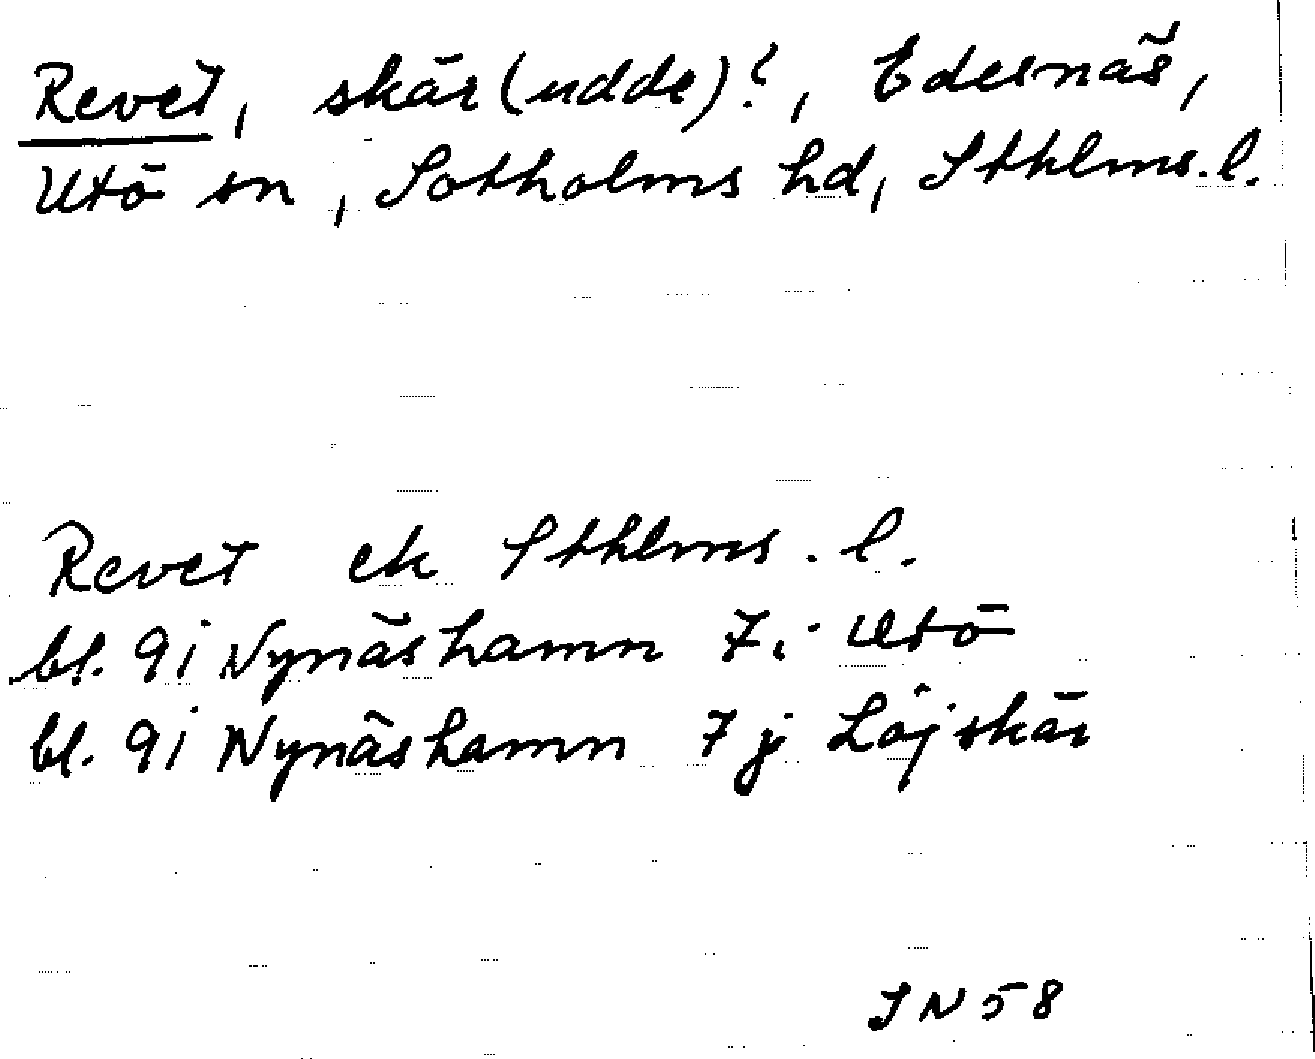 Revet, skär (udde)?, Edesnäs,
Utö sn, Sotholms hd, Sthlms. l.
Revet ek Sthlms. l.
bl. 9i Nynäshamn 7i Utö
bl. 9i Nynäshamn 7j Löjskär
JN 58